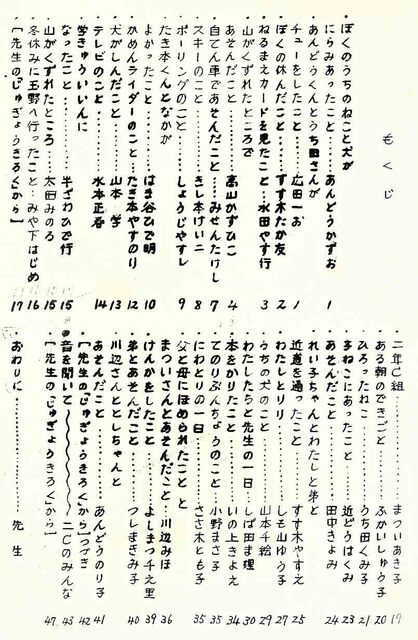 もくじ
・ぼくのうちのねこと犬が
にらみあったこと……あんどうかずお 1
・あんどうくんとうち田さんが
チューをしたこと……広田一お 1
・ぼくの休んだこと……すず木たか友 2
・ねるまえカードを見たこと…水田やす行 3
・山がくずれたところで
あそんだこと……高山かずひこ 4
・自てん車であそんだこと…みせんたけし 7
・スキーのこと……きし本けい二 8
・ボーリングのこと……しょうじやすし 9
・たき本くんとなかが
よかったこと……はま谷ひで明 10
・かめんライダーのこと…たき本やすのり 12
・犬がしんだこと……山本 学 13
・テレビのこと……水本正春 14
・学きゅういいんに
なったこと……半ざわひで行 15
・山がくずれたところ……太田みのる 15
・冬休みに玉野へ行ったこと…みや下はじめ 16
・[先生の「じゅぎょうきろく」から] 17
・二年C組……まついあき子 19
・ある朝のできごと……ふかいしゅう子 20
・ひろったねこ……うち田くみ子 21
・子ねこにあったこと……近どうはくみ 23
・あそんだこと……田中きよみ 24
・れい子ちゃんとわたしと弟と
近道を通ったこと……すす木やすえ 25
・わたしとリリ……しも山ゆう子 27
・うちの犬のこと……山本千絵 29
・わたしたちと先生の一日……しば田ま理 30
・本をかりたこと……いの上きよえ 34
・てのりぶんちょうのこと……小野まさ子 35
・にわとりの一日……ささ木とも子 35
・父と母にほめられたことと
まついさんとあそんだこと……川辺みほ 36
・けんかをしたこと……よしまつ千え里 39
・弟とあそんだこと……つしまぎみ子 40
・川辺さんととしちゃんと
あそんだこと……あんどうのり子 41
・[先生の「じゅぎょうきろく」から]つづき 42
・音を聞いて 二Cのみんな 43
・[先生の「じゅぎょうきろく」から] 47
・おわりに……先生